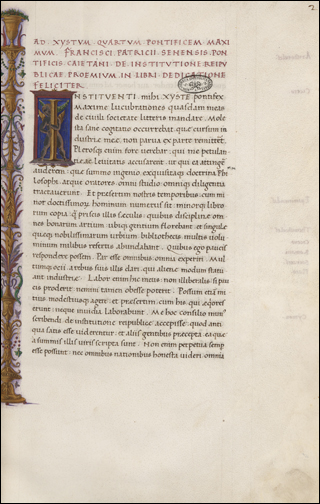 2
AD XYSTVM QVARTVM PONTIFICEM MAXI
MVM. FRANCISCI PATRICII SENENSIS PON
TIFICIS CAIETANI DE INSTITVTIONE REIPV
BLICAE PROEMIVM IN LIBRI DEDICATIONE
FELICITER
INSTITVENTI mihi XYSTE pontifex
Maxime Lucubrationes quasdam meas
de civili societate litteris mandare. Mole
sta sane cogitatio occurrebat quae cursum in
dustriae meae non parva ex parte remitteret.
Plerosque enim fore verebar qui me petulan
tiae ac Levitatis accusarent ut qui ea attingere
auderem quae summo ingenio exquisitaque doctrina Phi
losophi atque oratores omni studio omnique diligentia
tractaverunt. Et praesertim nostris temporibus cum mi
nor doctissimorum hominum numerus sit minorque libro
rum copia quam priscis illis saeculis quibus disciplinae om
nes bonarum artium ubique gentium florebant et singulae
quaeque nobilissimarum urbium bibliothecae multis volu
minum milibus refertis abundabant. Quibus ego paucis
respondere possem. Par esse omnibus omnia experiri.
artibus suis illis dari qui aliene modum statu
ant industriae. Labor enim hic meus non illiberalis si pau
cis proderit nemini tamen obesse poterit. Possum etiam
mecum modestiusque agere et praesertim cum his qui
erunt neque invidia laborabunt. Me hoc consilio
scribendi de institutione reipublicae accepisse quod anti
qua satis esse viderentur et aliis gentibus praecepta ea quae
a summis illis viris scripta sunt. Non enim perpetua semper
esse possunt nec omnibus nationibus honesta videri omnia